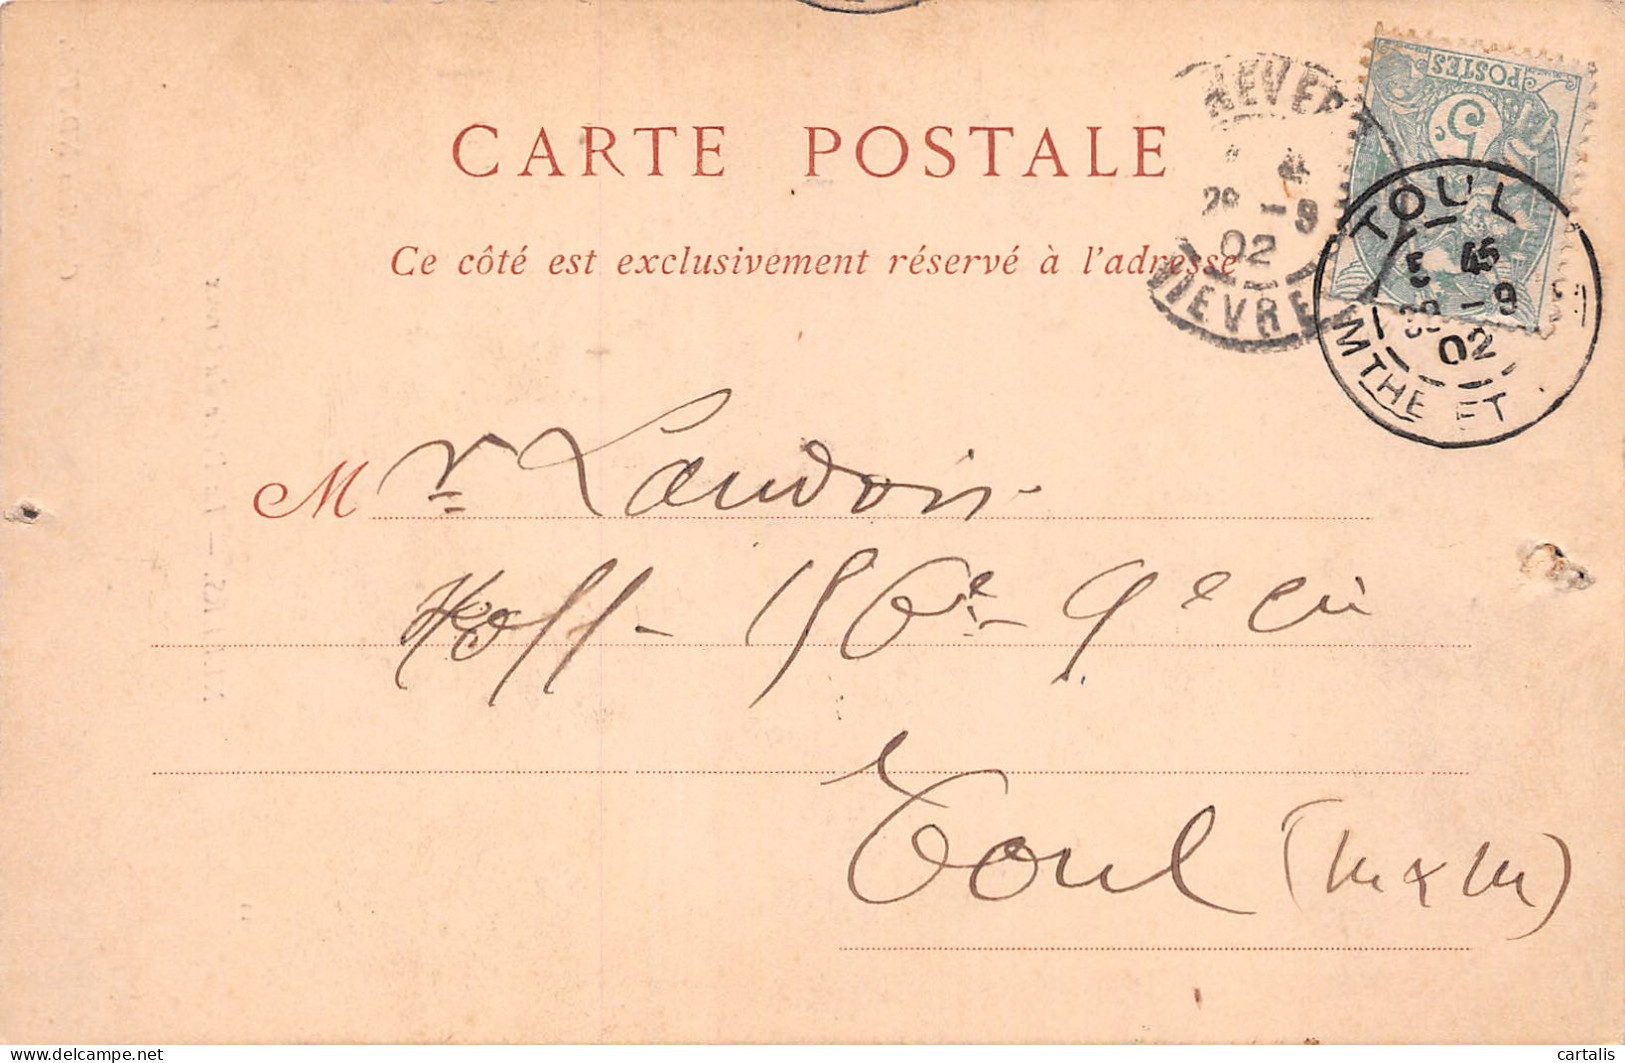 CARTE POSTALE
Ce côté est exclusivement réservé à l'adresse
NEVER
28 -9
02
NIEVRE
POSTES
5
TOUL
5 45
-9
02
MTHE ET
M r Landois
Hoff - 156e - 9e Cie
Toul (M & M)
delcampe.net
cartalis